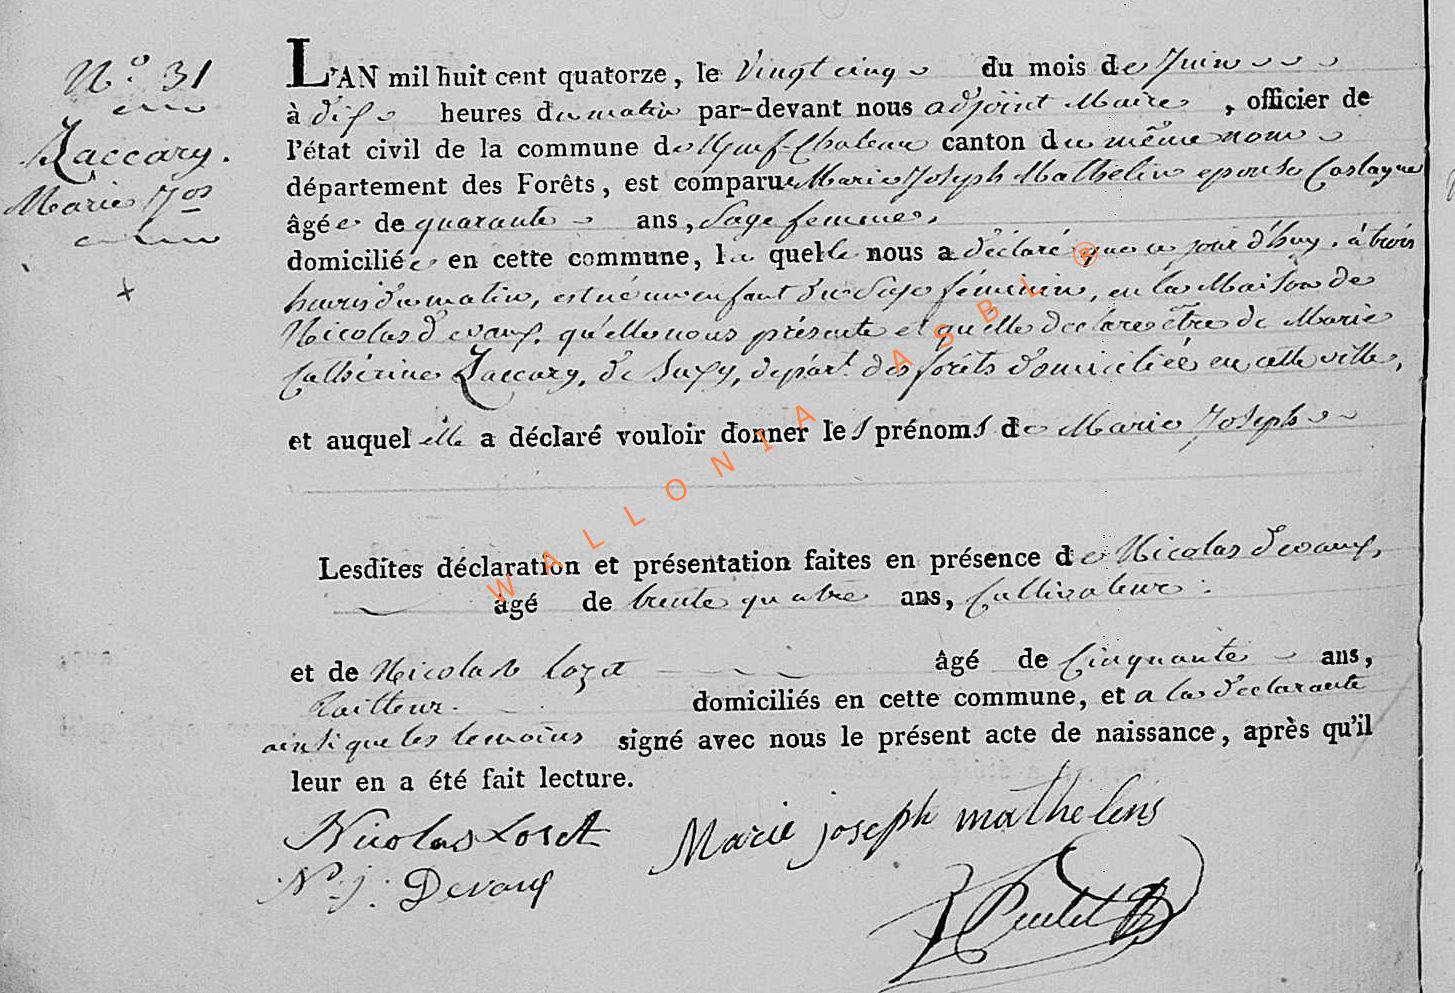 N.° 31
Zaccary.
Marie Jos
L'AN mil huit cent quatorze, le Vingt cinq du mois de Juin
à dix heures du matin par-devant nous adjoint Maire, officier de
l'état civil de la commune de Neuf-Chateau canton du même nom
département des Forêts, est comparue Marie Joseph Mathelin epouse Castagne
âgée de quarante ans, Sage femme,
domiciliée en cette commune, la quelle nous a déclaré que ce jour d'huy, à trois
heures du matin, est né un enfant du Sexe féminin, en la Maison de
Nicolas Devaux, qu'elle nous présente et qu'elle declare être de Marie
Cathérine Zaccary, de Suxy, depart.t des forêts domiciliée en cette ville,
et auquel elle a déclaré vouloir donner les prénoms de Marie Joseph
Lesdites déclaration et présentation faites en présence de Nicolas Devaux,
âgé de trente quatre ans, Cultivateur.
et de Nicolas Lozet âgé de Cinquante ans,
domiciliés en cette commune, et a la déclarante
ainsi que les temoins signé avec nous le présent acte de naissance, après qu'il
leur en a été fait lecture.
Nicolas Loset
Marie joseph mathelins
N. j. Devaux
WALLONIA ASBL ®